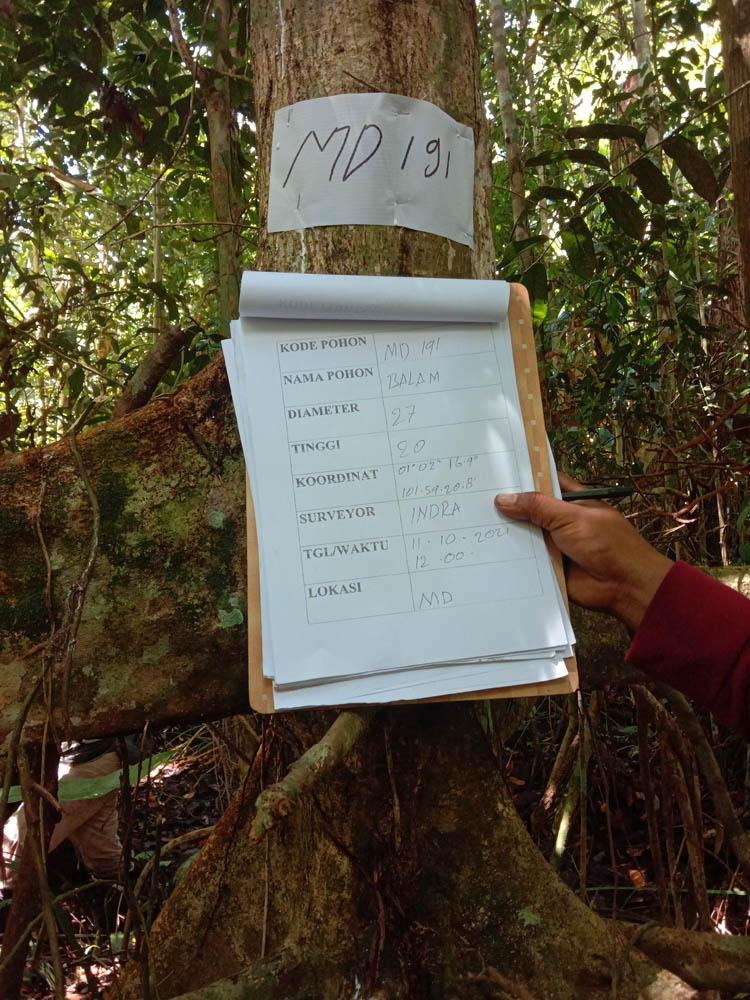 MD 191
KODE POHON MD 191
NAMA POHON BALAM
DIAMETER 27
TINGGI 20
KOORDINAT 01°02" 16.9"
101.59.20.8'
SURVEYOR INDRA
TGL/WAKTU 11.10.2021
12.00.
LOKASI MD